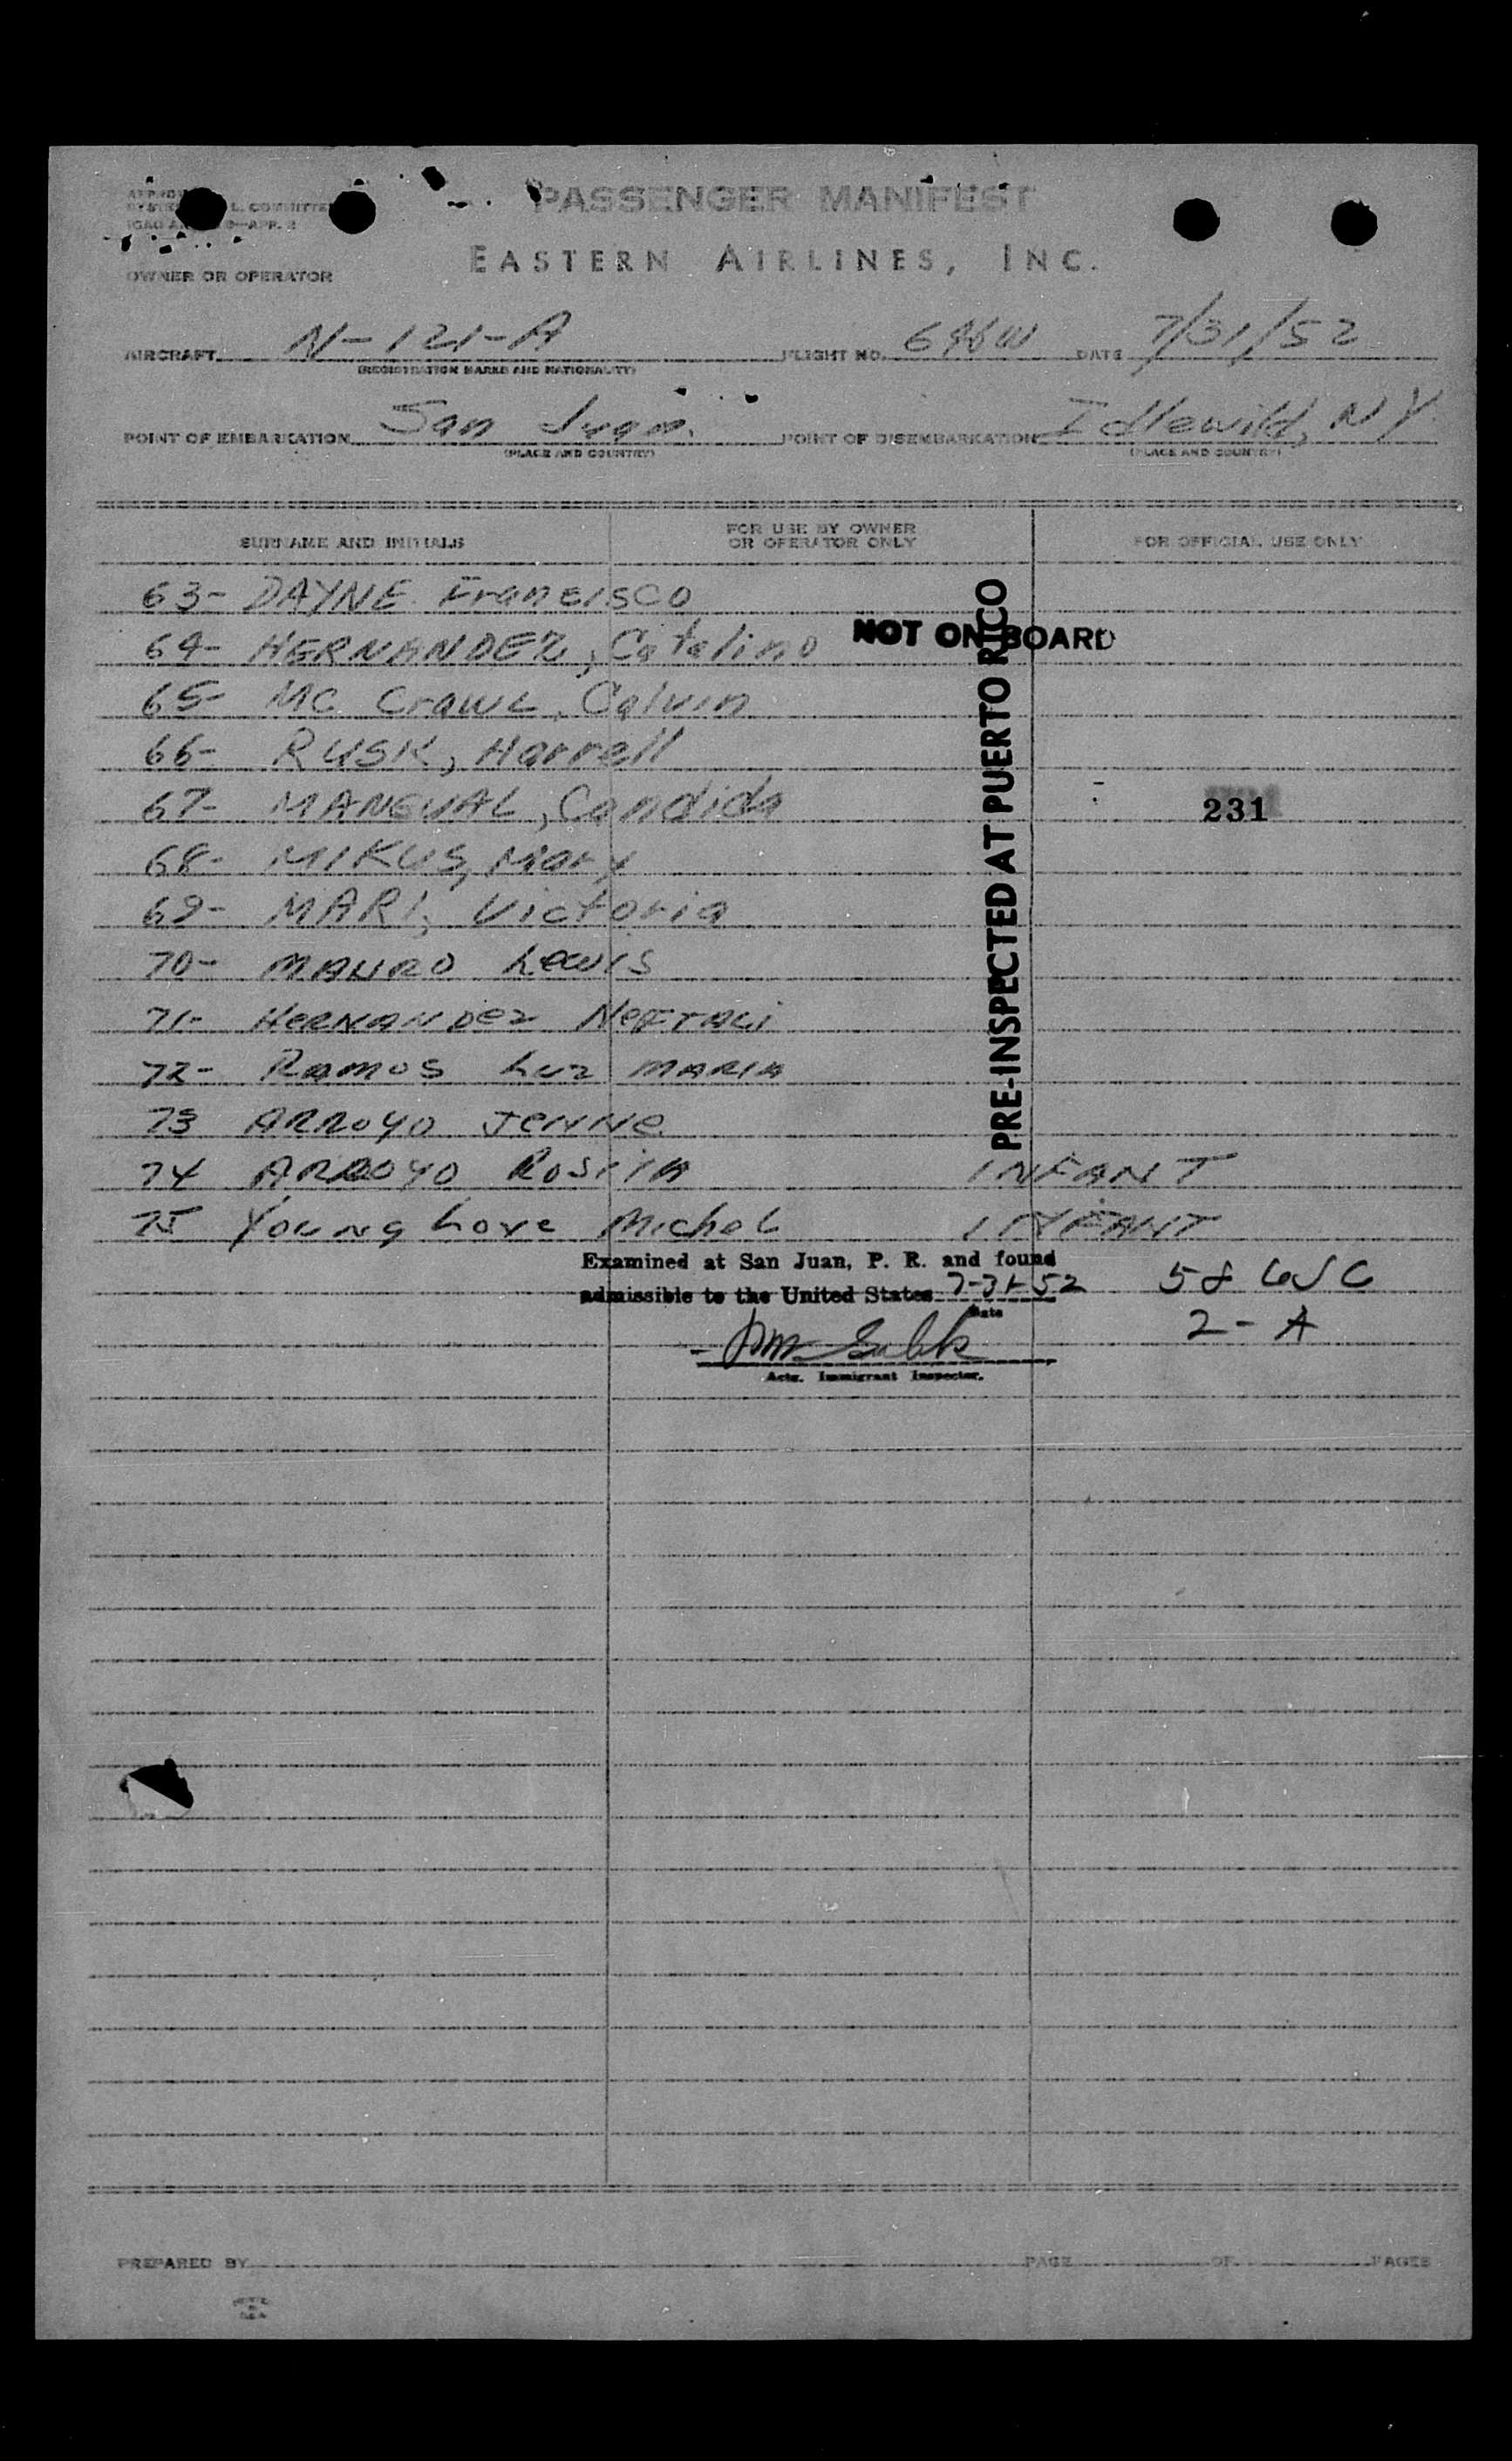 PASSENGER MANIFEST
EASTERN AIRLINES, INC.
OWNER OR OPERATOR
AIRCRAFT N-121-A FLIGHT NO. DATE 7/31/52
(REGISTRATION MARKS AND NATIONALITY)
POINT OF EMBARKATION San Juan. POINT OF DISEMBARKATION Idlewild, NY
(PLACE AND COUNTRY) (PLACE AND COUNTRY)
SURNAME AND INITIALS FOR USE BY OWNER OR OPERATOR ONLY FOR OFFICIAL USE ONLY
63- DAYNE Francisco
64- HERNANDEZ, Catalino NOT ON BOARD
65- MC Crawl, Calvin
66- RUSK, Harrell
67- MANGUAL, Candida 231
68- MIKUS, Mary
69- MARI, Victoria
70- MAURO Lewis
71- HERNANDEZ NEFTALI
72- RAMOS Luz MARIA
73 ARROYO JENNE
74 ARROYO ROSITA INFANT
75 Young Love Michel INFANT
PRE-INSPECTED AT PUERTO RICO
Examined at San Juan, P. R. and found
admissible to the United States 7-31-52
Date
58 USC
2- A
Actg. Immigrant Inspector.
PREPARED BY PAGE OF PAGES